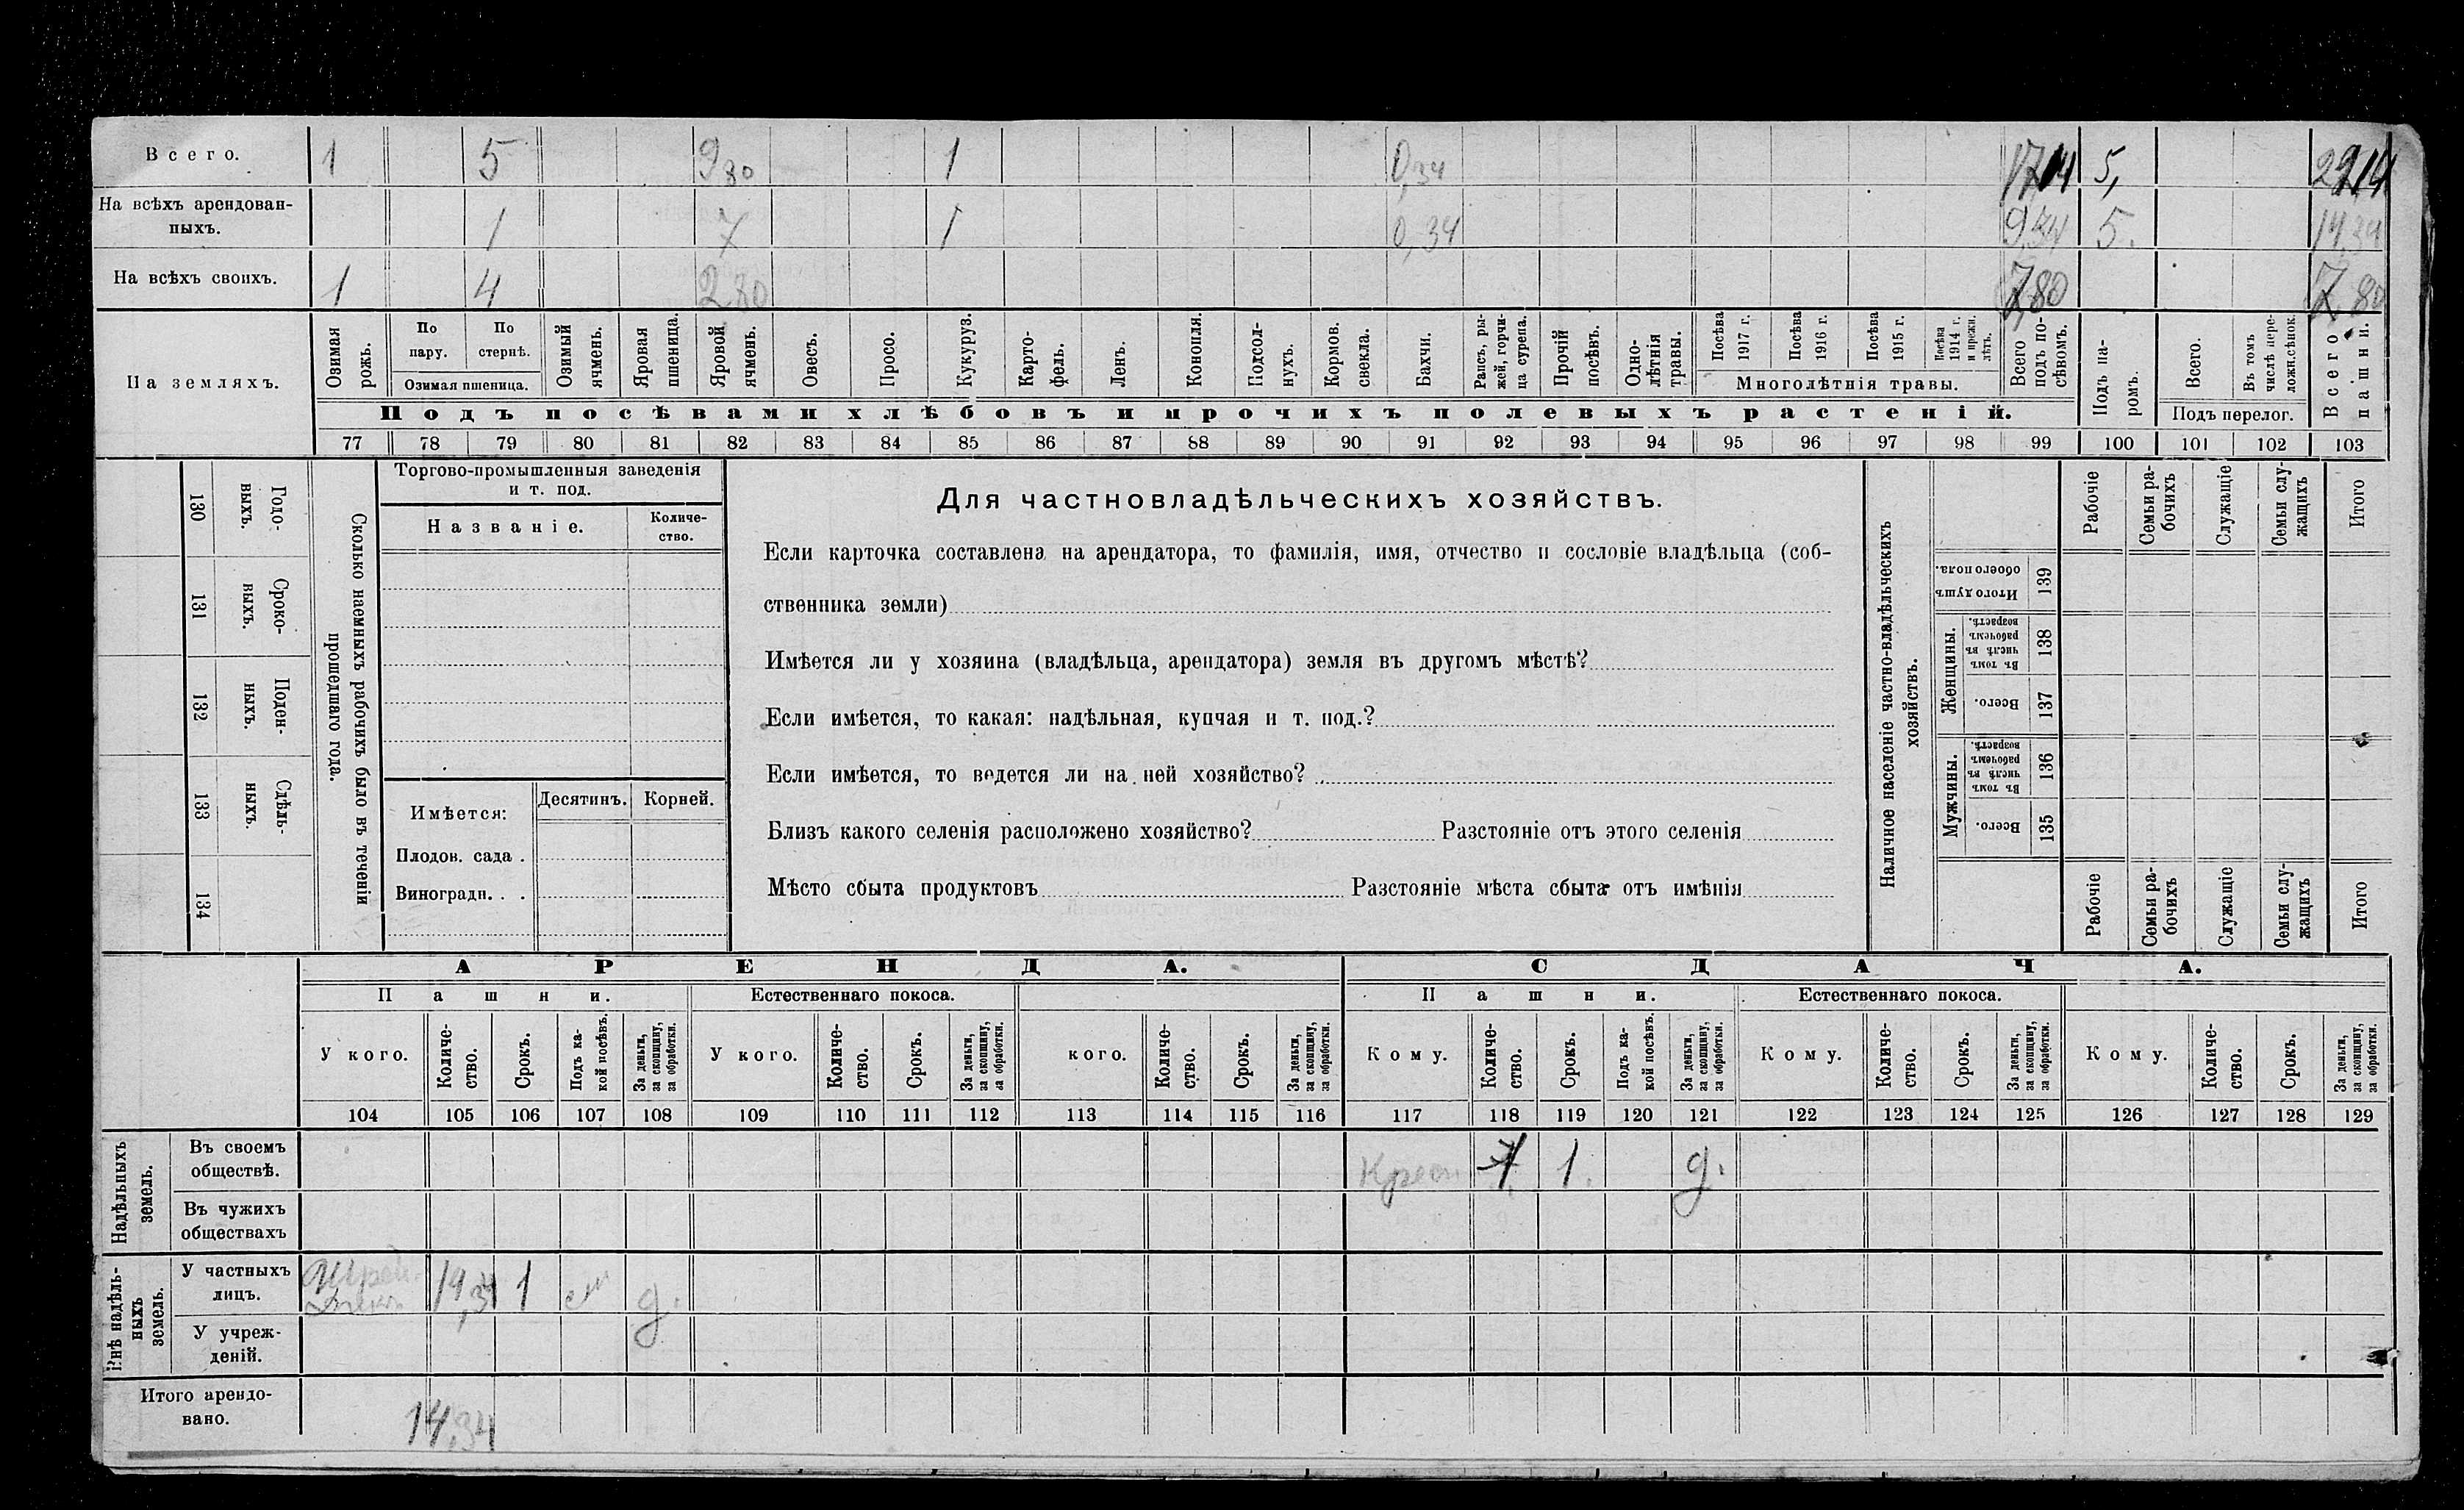 Всего. 1 5 9,80 1 0,34 17,14 5, 22,14
На всѣхъ арендован-
ныхъ. 1 7 1 0,34 9,34 5. 14,34
На всѣхъ своихъ. 1 4 2,80 7,80 7,80
На земляхъ.
Озимая
рожь.
По
пару.
По
стернѣ.
Озимая пшеница.
Озимый
ячмень.
Яровая
пшеница.
Яровой
ячмень.
Овесъ.
Просо.
Кукуруз.
Карто-
фель.
Ленъ.
Конопля.
Подсол-
нухъ.
Кормов.
свекла.
Бахчи.
Рапсъ, ры-
жей, горчи-
ца сурепа.
Прочій
посѣвъ.
Одно-
лѣтнія
травы.
Посѣва
1917 г.
Посѣва
1916 г.
Посѣва
1915 г.
Посѣва
1914 г.
и прежн.
лѣтъ.
Многолѣтнія травы.
Всего
подъ по-
сѣвомъ.
Подъ па-
ромъ.
Всего.
Въ томъ
числѣ пере-
ложн.сѣнок.
Подъ перелог.
Всего
пашни.
Подъ посѣвами хлѣбовъ и прочихъ полевыхъ растеній.
77 78 79 80 81 82 83 84 85 86 87 88 89 90 91 92 93 94 95 96 97 98 99 100 101 102 103
130 Годо-
ныхъ.
131 Сроко-
ныхъ.
132 Поден-
ныхъ.
133 Сдѣль-
ныхъ.
134
Сколько наемныхъ рабочихъ было въ теченіи
прошедшаго года.
Торгово-промышленныя заведенія
и т. под.
Названіе.
Количе-
ство.
Имѣется:
Десятинъ.
Корней.
Плодов. сада .
Виноградн. . .
Для частновладѣльческихъ хозяйствъ.
Если карточка составлена на арендатора, то фамилія, имя, отчество и сословіе владѣльца (соб-
ственника земли)
Имѣется ли у хозяина (владѣльца, арендатора) земля въ другомъ мѣстѣ?
Если имѣется, то какая: надѣльная, купчая и т. под.?
Если имѣется, то ведется ли на ней хозяйство?
Близъ какого селенія расположено хозяйство? Разстояніе отъ этого селенія
Мѣсто сбыта продуктовъ Разстояніе мѣста сбыта отъ имѣнія
Наличное населеніе частно-владѣльческихъ
хозяйствъ.
Рабочіе
Семьи ра-
бочихъ
Служащіе
Семьи слу-
жащихъ
Итого
Итого душъ
обоего пола.
139
Женщины.
Въ томъ
числѣ въ
рабочемъ
возрастѣ.
138
Всего.
137
Мужчины.
Въ томъ
числѣ въ
рабочемъ
возрастѣ.
136
Всего.
135
Рабочіе
Семьи ра-
бочихъ
Служащіе
Семьи слу-
жащихъ
Итого
АРЕНДА.
СДАЧА.
Пашни.
Естественнаго покоса.
Пашни.
Естественнаго покоса.
У кого.
Количе-
ство.
Срокъ.
Подъ ка-
кой посѣвъ.
За деньги,
за скопщину,
за обработки.
У кого.
Количе-
ство.
Срокъ.
За деньги,
за скопщину,
за обработки.
кого.
Количе-
ство.
Срокъ.
За деньги,
за скопщину,
за обработки.
Кому.
Количе-
ство.
Срокъ.
Подъ ка-
кой посѣвъ.
За деньги,
за скопщину,
за обработки.
Кому.
Количе-
ство.
Срокъ.
За деньги,
за скопщину,
за обработки.
Кому.
Количе-
ство.
Срокъ.
За деньги,
за скопщину,
за обработки.
104 105 106 107 108 109 110 111 112 113 114 115 116 117 118 119 120 121 122 123 124 125 126 127 128 129
Надѣльныхъ
земель.
Въ своемъ
обществѣ. Крест 7 1. д.
Въ чужихъ
обществахъ
Внѣ надѣль-
ныхъ
земель.
У частныхъ
лицъ. 14,34 1 д.
У учреж-
деній.
Итого арендо-
вано. 14,34